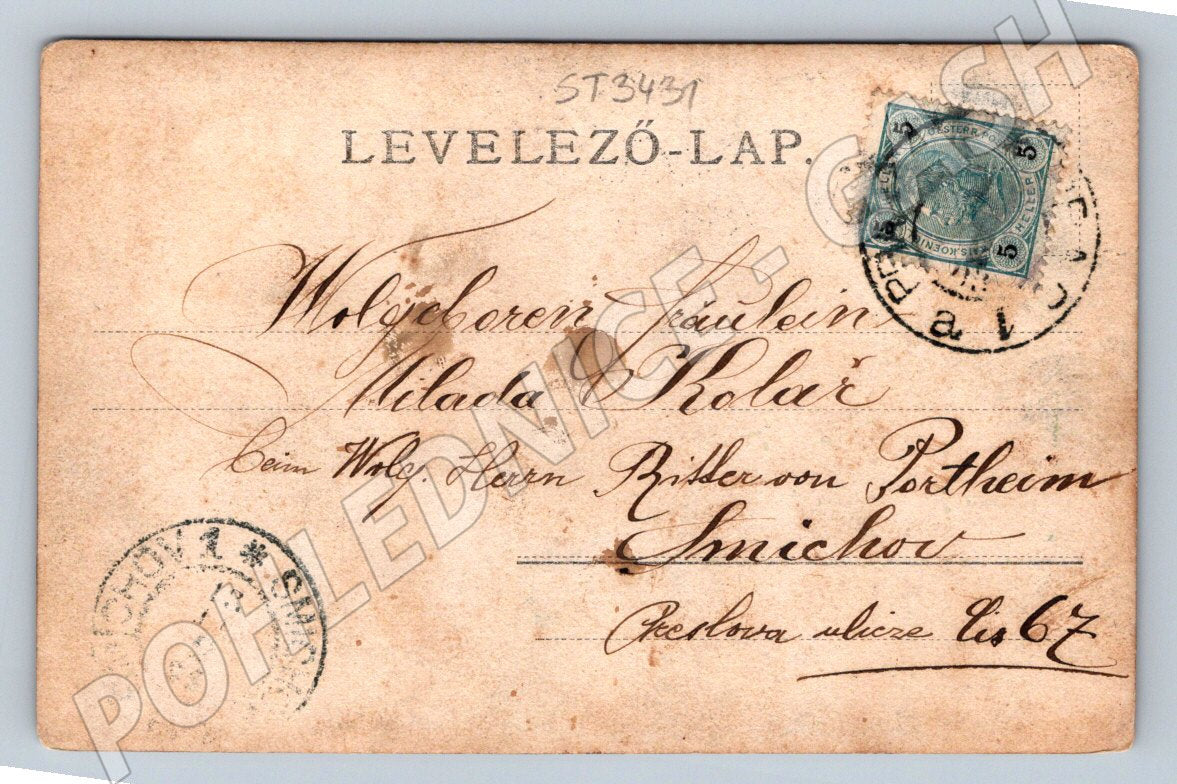 ST3431
LEVELEZŐ-LAP.
5 OESTERR. 5
HELLER
5 5
1 a
Wolgeboren Fräulein
Milada Kolař
beim Wolg. Herrn Ritter von Portheim
Smichov
Preslova ulicze čis 67
SMICHOV 1 *
POHLEDNICE - GASH